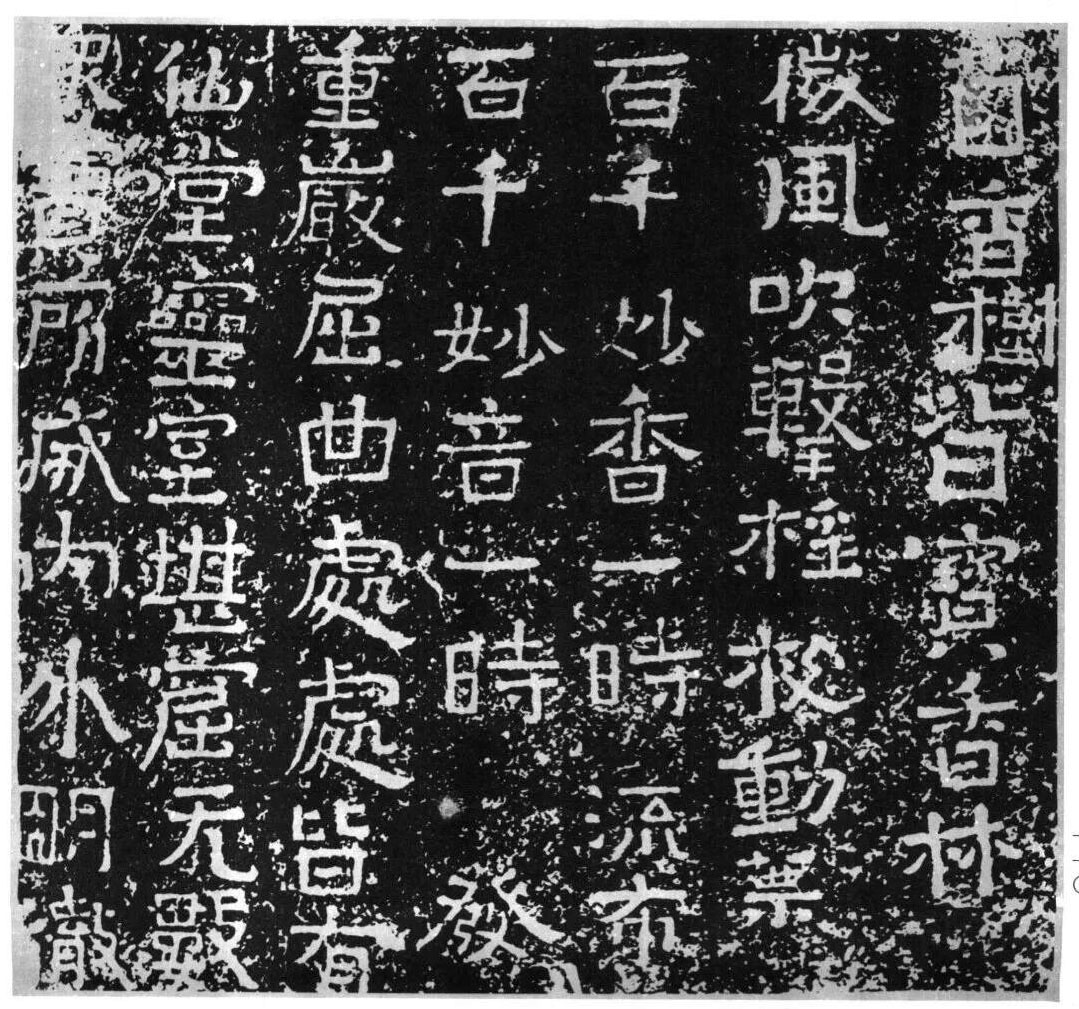 香樹皆寶香林
微風吹擊動
百千妙香一時流布
百千妙音一時發
重巖屈曲處處皆有
仙堂靈室无
內外明徹